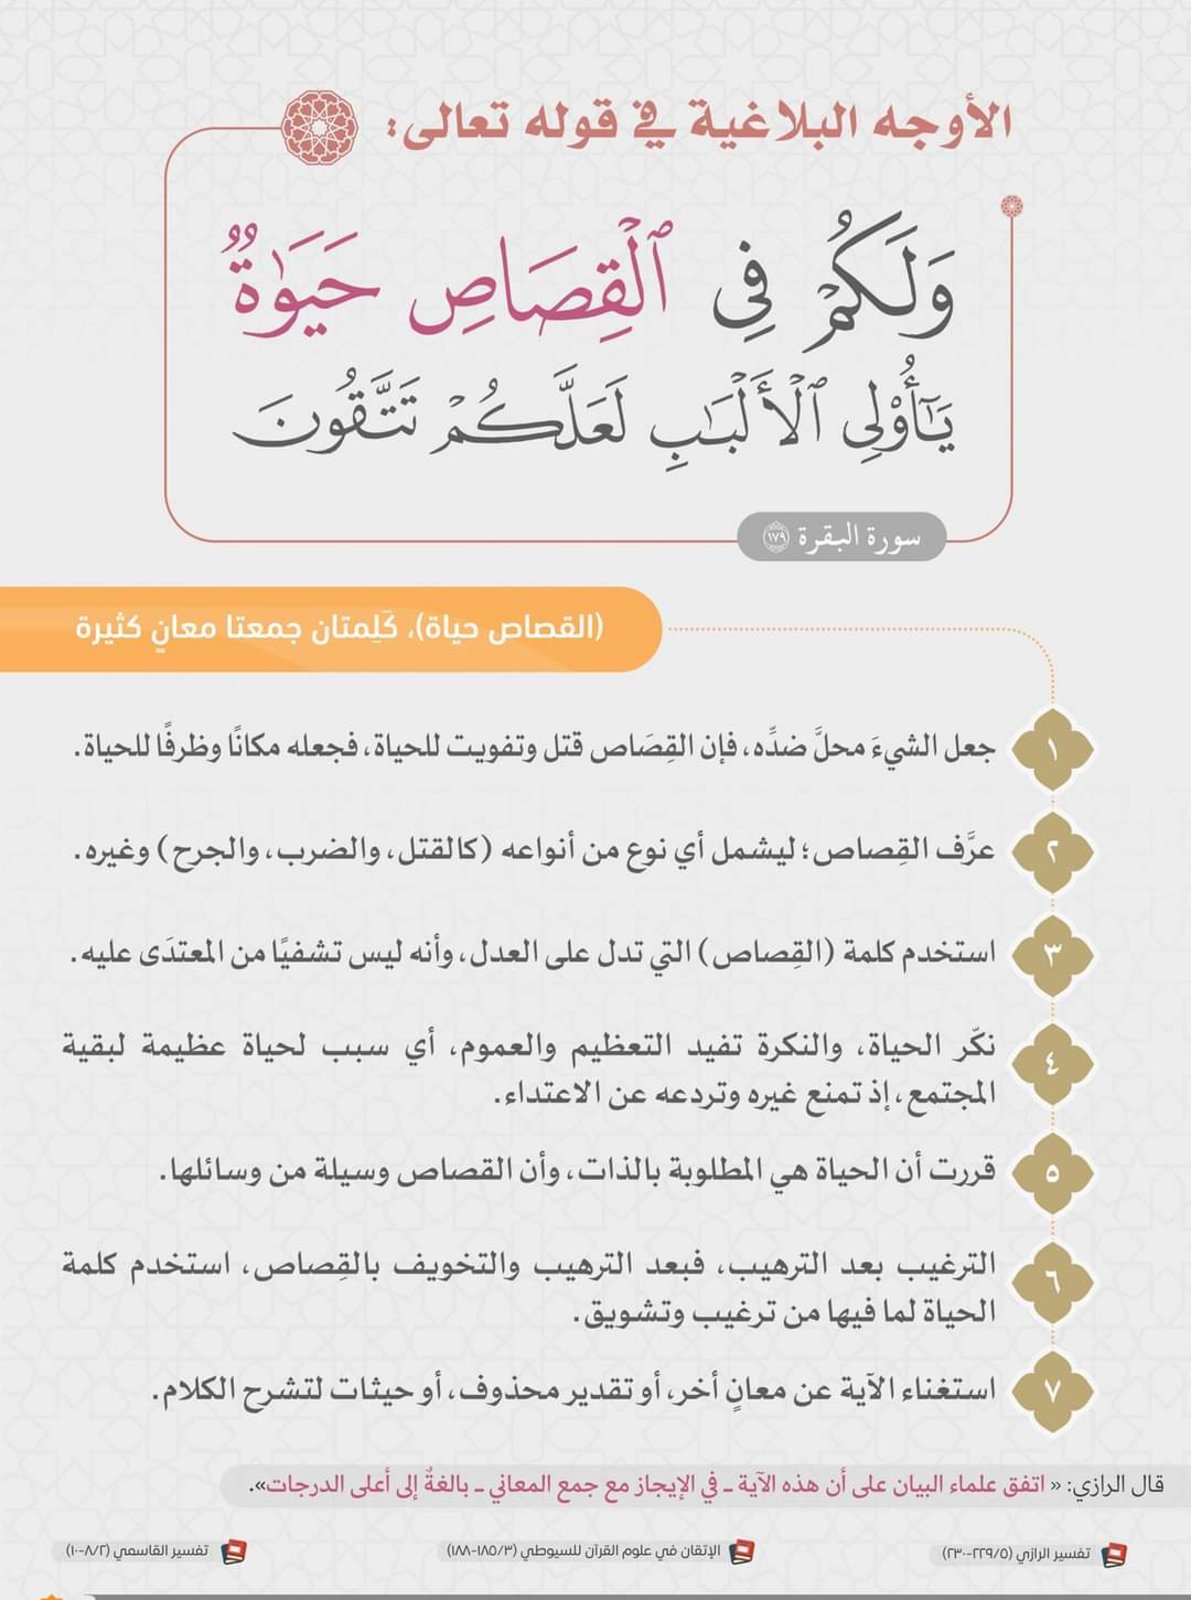 الأوجه البلاغية في قوله تعالى:
وَلَكُمْ فِي ٱلْقِصَاصِ حَيَوٰةٌ
يَـٰٓأُو۟لِى ٱلْأَلْبَـٰبِ لَعَلَّكُمْ تَتَّقُونَ
سورة البقرة ١٧٩
(القصاص حياة)، كَلِمتان جمعتا معانٍ كثيرة
١ جعل الشيءَ محلَّ ضدِّه، فإن القِصَاص قتل وتفويت للحياة، فجعله مكانًا وظرفًا للحياة.
٢ عرَّف القِصاص؛ ليشمل أي نوع من أنواعه (كالقتل، والضرب، والجرح) وغيره.
٣ استخدم كلمة (القِصاص) التي تدل على العدل، وأنه ليس تشفيًا من المعتدَى عليه.
٤ نكّر الحياة، والنكرة تفيد التعظيم والعموم، أي سبب لحياة عظيمة لبقية
المجتمع، إذ تمنع غيره وتردعه عن الاعتداء.
٥ قررت أن الحياة هي المطلوبة بالذات، وأن القصاص وسيلة من وسائلها.
٦ الترغيب بعد الترهيب، فبعد الترهيب والتخويف بالقِصاص، استخدم كلمة
الحياة لما فيها من ترغيب وتشويق.
٧ استغناء الآية عن معانٍ أخر، أو تقدير محذوف، أو حيثات لتشرح الكلام.
قال الرازي: « اتفق علماء البيان على أن هذه الآية ـ في الإيجاز مع جمع المعاني ـ بالغةٌ إلى أعلى الدرجات».
تفسير الرازي (٥/٢٢٩-٢٣٠)
الإتقان في علوم القرآن للسيوطي (٣/١٨٥-١٨٨)
تفسير القاسمي (٢/٨-١٠)